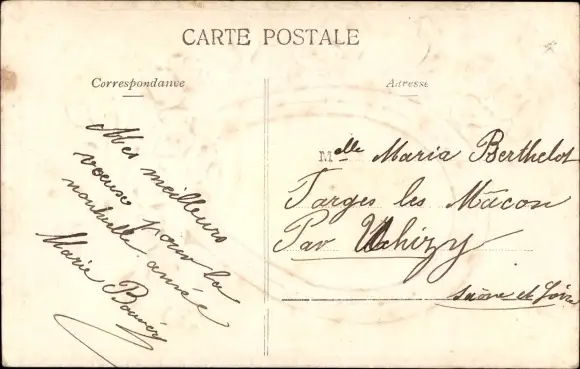 CARTE POSTALE
Correspondance
Adresse
Mes meilleurs
voeux pour la
nouvelle année
Marie
Melle Maria Berthelot
Farges les Mâcon
Par Uchizy
Saône et Loire